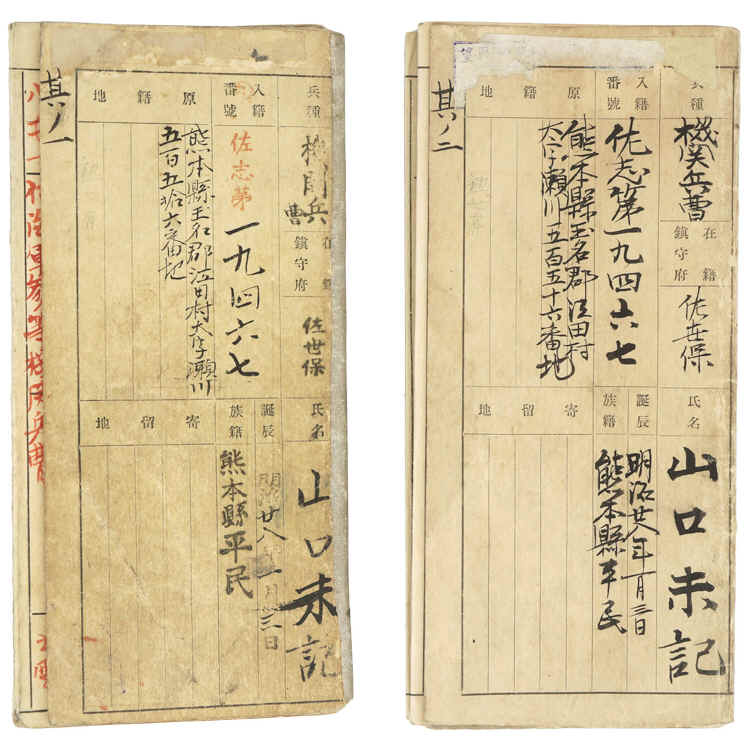 其ノ一
兵種
機関兵曹
在籍鎮守府
佐世保
氏名
山口未記
入籍番號
佐志第一九四六七
誕辰
明治廿八年一月三日
族籍
熊本縣平民
原籍地
熊本縣玉名郡江田村大字瀬川
五百五拾六番地
寄留地
其ノ二
兵種
機関兵曹
在籍鎮守府
佐世保
氏名
山口未記
入籍番號
佐志第一九四六七
誕辰
明治廿八年一月三日
族籍
熊本縣平民
原籍地
熊本縣玉名郡江田村
大字瀬川五百五十六番地
寄留地